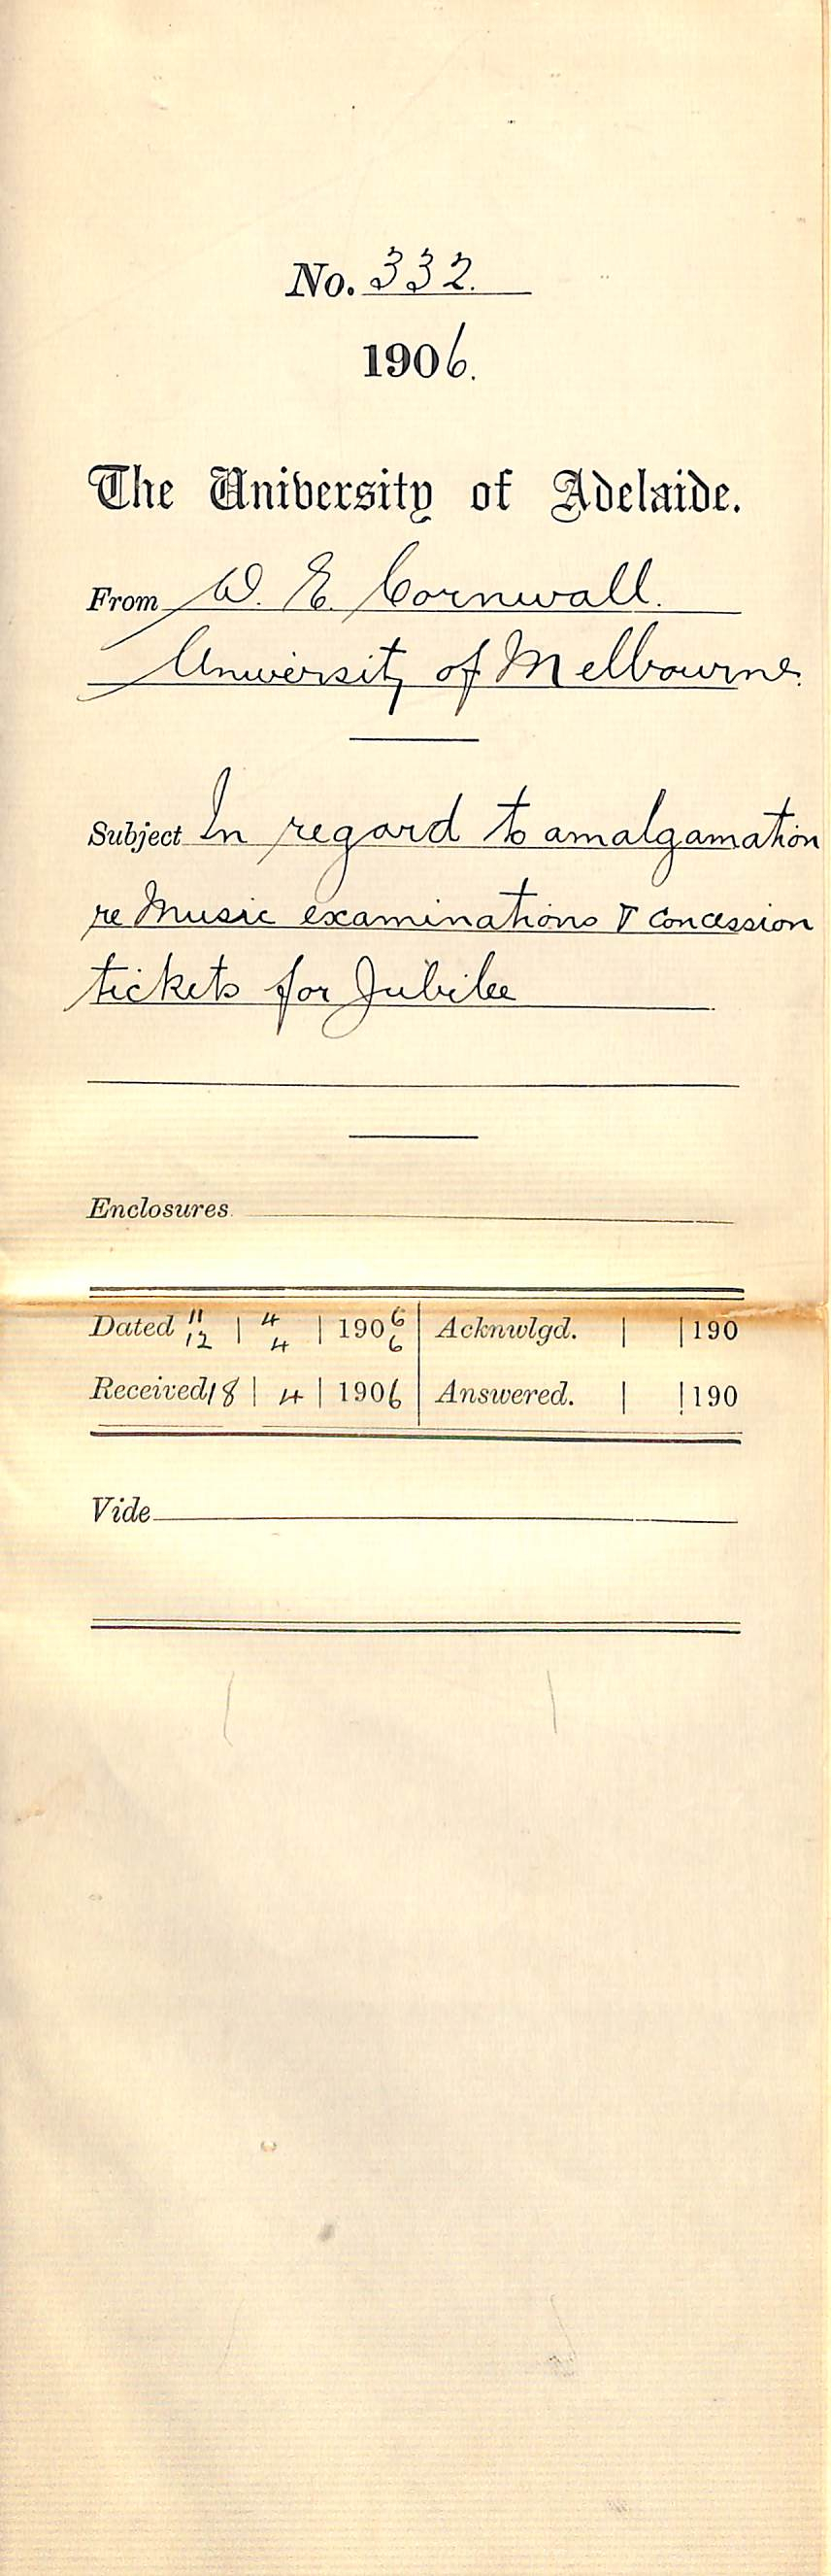 No. 332.
1906.
The University of Adelaide.
From W. E. Cornwall.
University of Melbourne.
Subject In regard to amalgamation
re Music examinations & Concession
tickets for Jubilee
Enclosures
Dated 11 | 4 | 1906 Acknwlgd. | | 190
12 4 6
Received 18 | 4 | 1906 Answered. | | 190
Vide